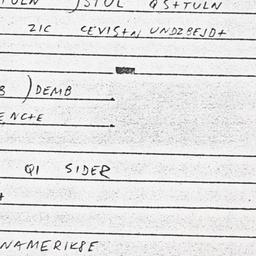 )STUL QS+TULN
ZIC CEVIS+N UNDZBEJD+
)DEMB
ENC+E
QI SIDER
+
NAMERIK8E